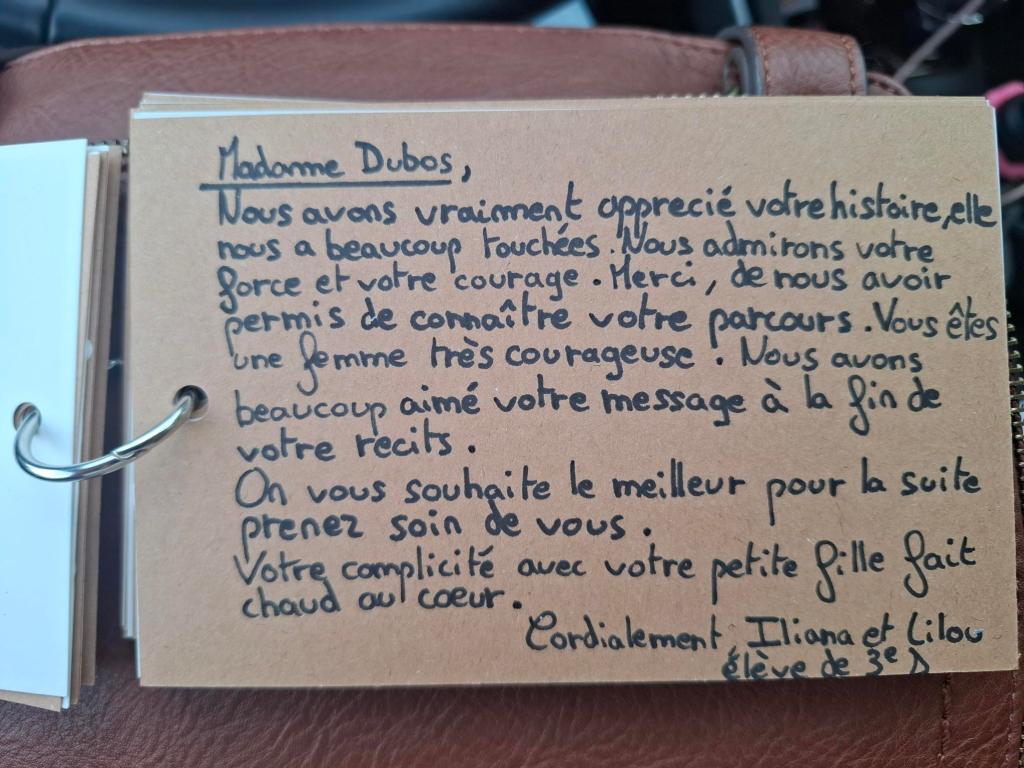 Madame Dubos,
Nous avons vraimment apprecié votre histoire, elle
nous a beaucoup touchées. Nous admirons votre
force et votre courage. Merci, de nous avoir
permis de connaître votre parcours. Vous êtes
une femme très courageuse. Nous avons
beaucoup aimé votre message à la fin de
votre récits.
On vous souhaite le meilleur pour la suite
prenez soin de vous.
Votre complicité avec votre petite fille fait
chaud au coeur.
Cordialement, Iliana et Lilou
élève de 3e D